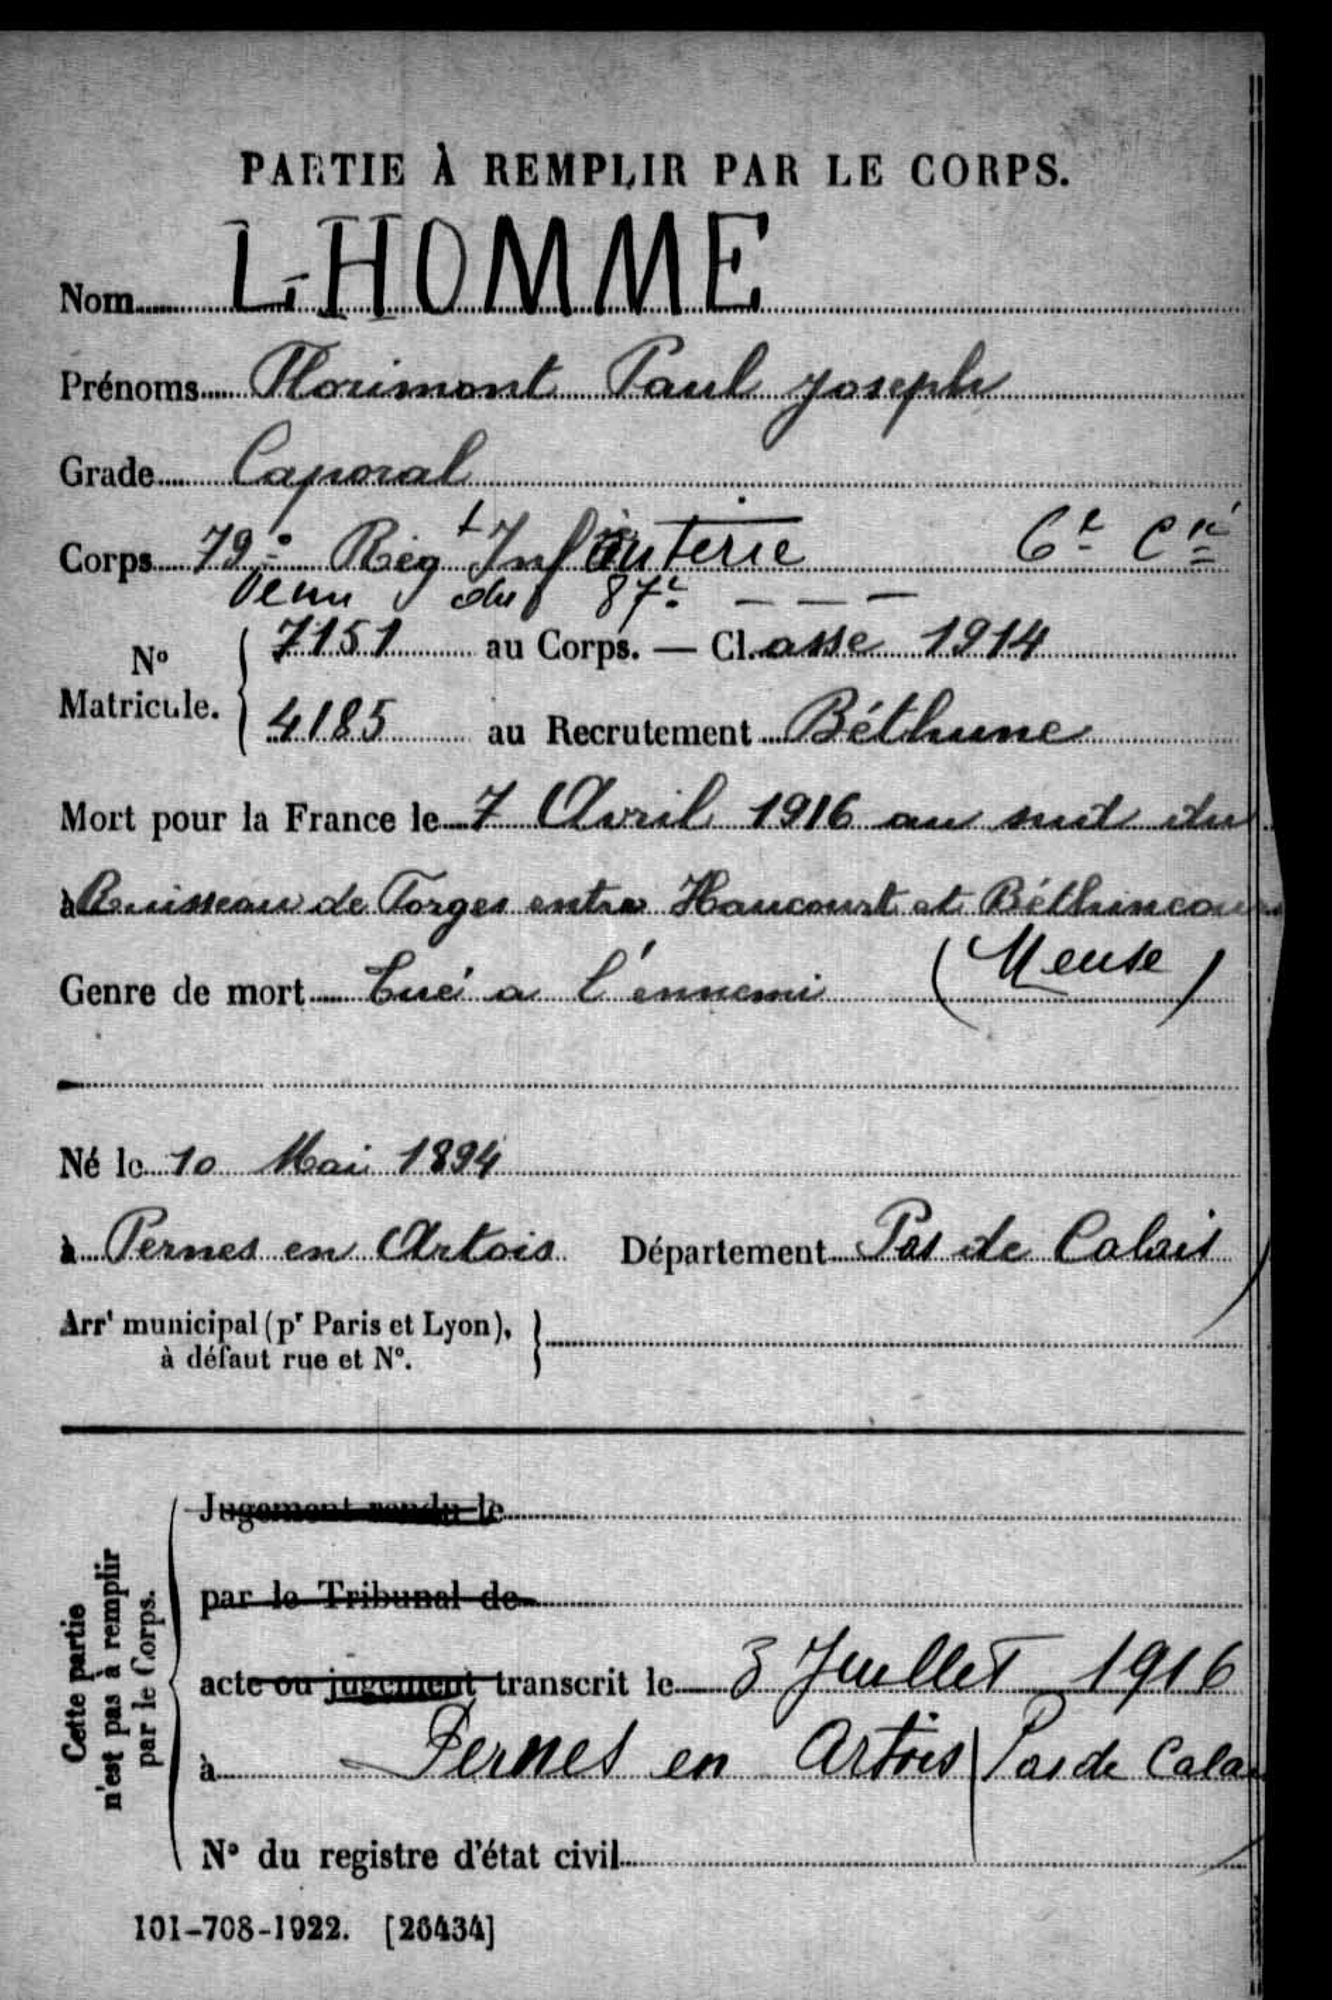 PARTIE À REMPLIR PAR LE CORPS.
Nom L-HOMME
Prénoms Florimont Paul Joseph
Grade Caporal
Corps 79e Régt Infanterie 6e Cie
Venu du 87e — — —
No Matricule. { 7151 au Corps. — Cl.asse 1914
4185 au Recrutement Béthune
Mort pour la France le 7 Avril 1916 au sud du
à Ruisseau de Forges entre Haucourt et Béthincourt
(Meuse)
Genre de mort Tué a l'ennemi
Né le 10 Mai 1894
à Pernes en Artois Département Pas de Calais
Arrt municipal (pr Paris et Lyon), }
à défaut rue et No.
Cette partie
n'est pas à remplir
par le Corps.
Jugement rendu le
par le Tribunal de
acte ou jugement transcrit le 3 Juillet 1916
à Pernes en Artois Pas de Calai
No du registre d'état civil
101-708-1922. [26434]